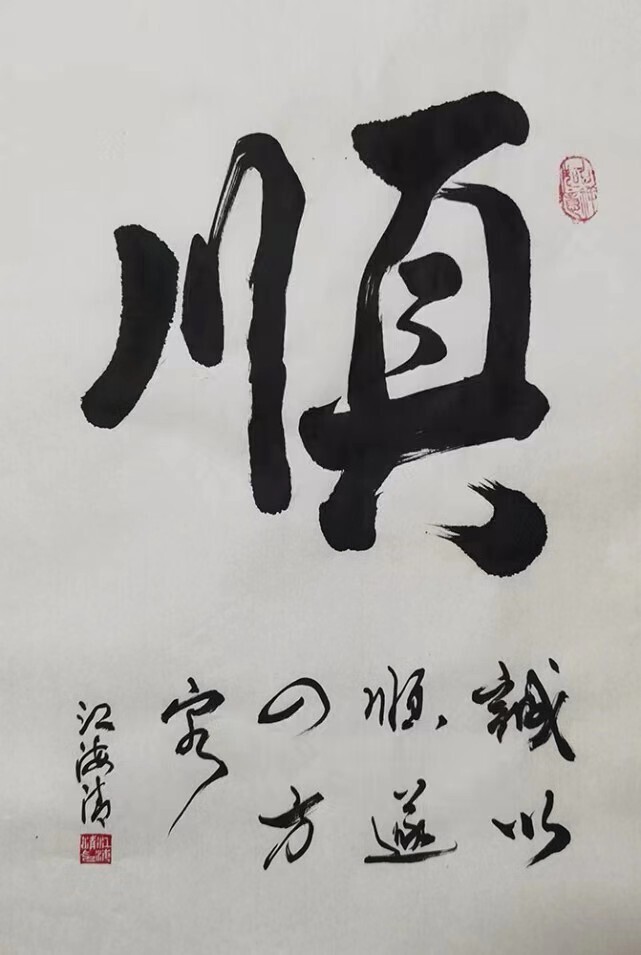 順
誠以
順遂
四方
客
江海清